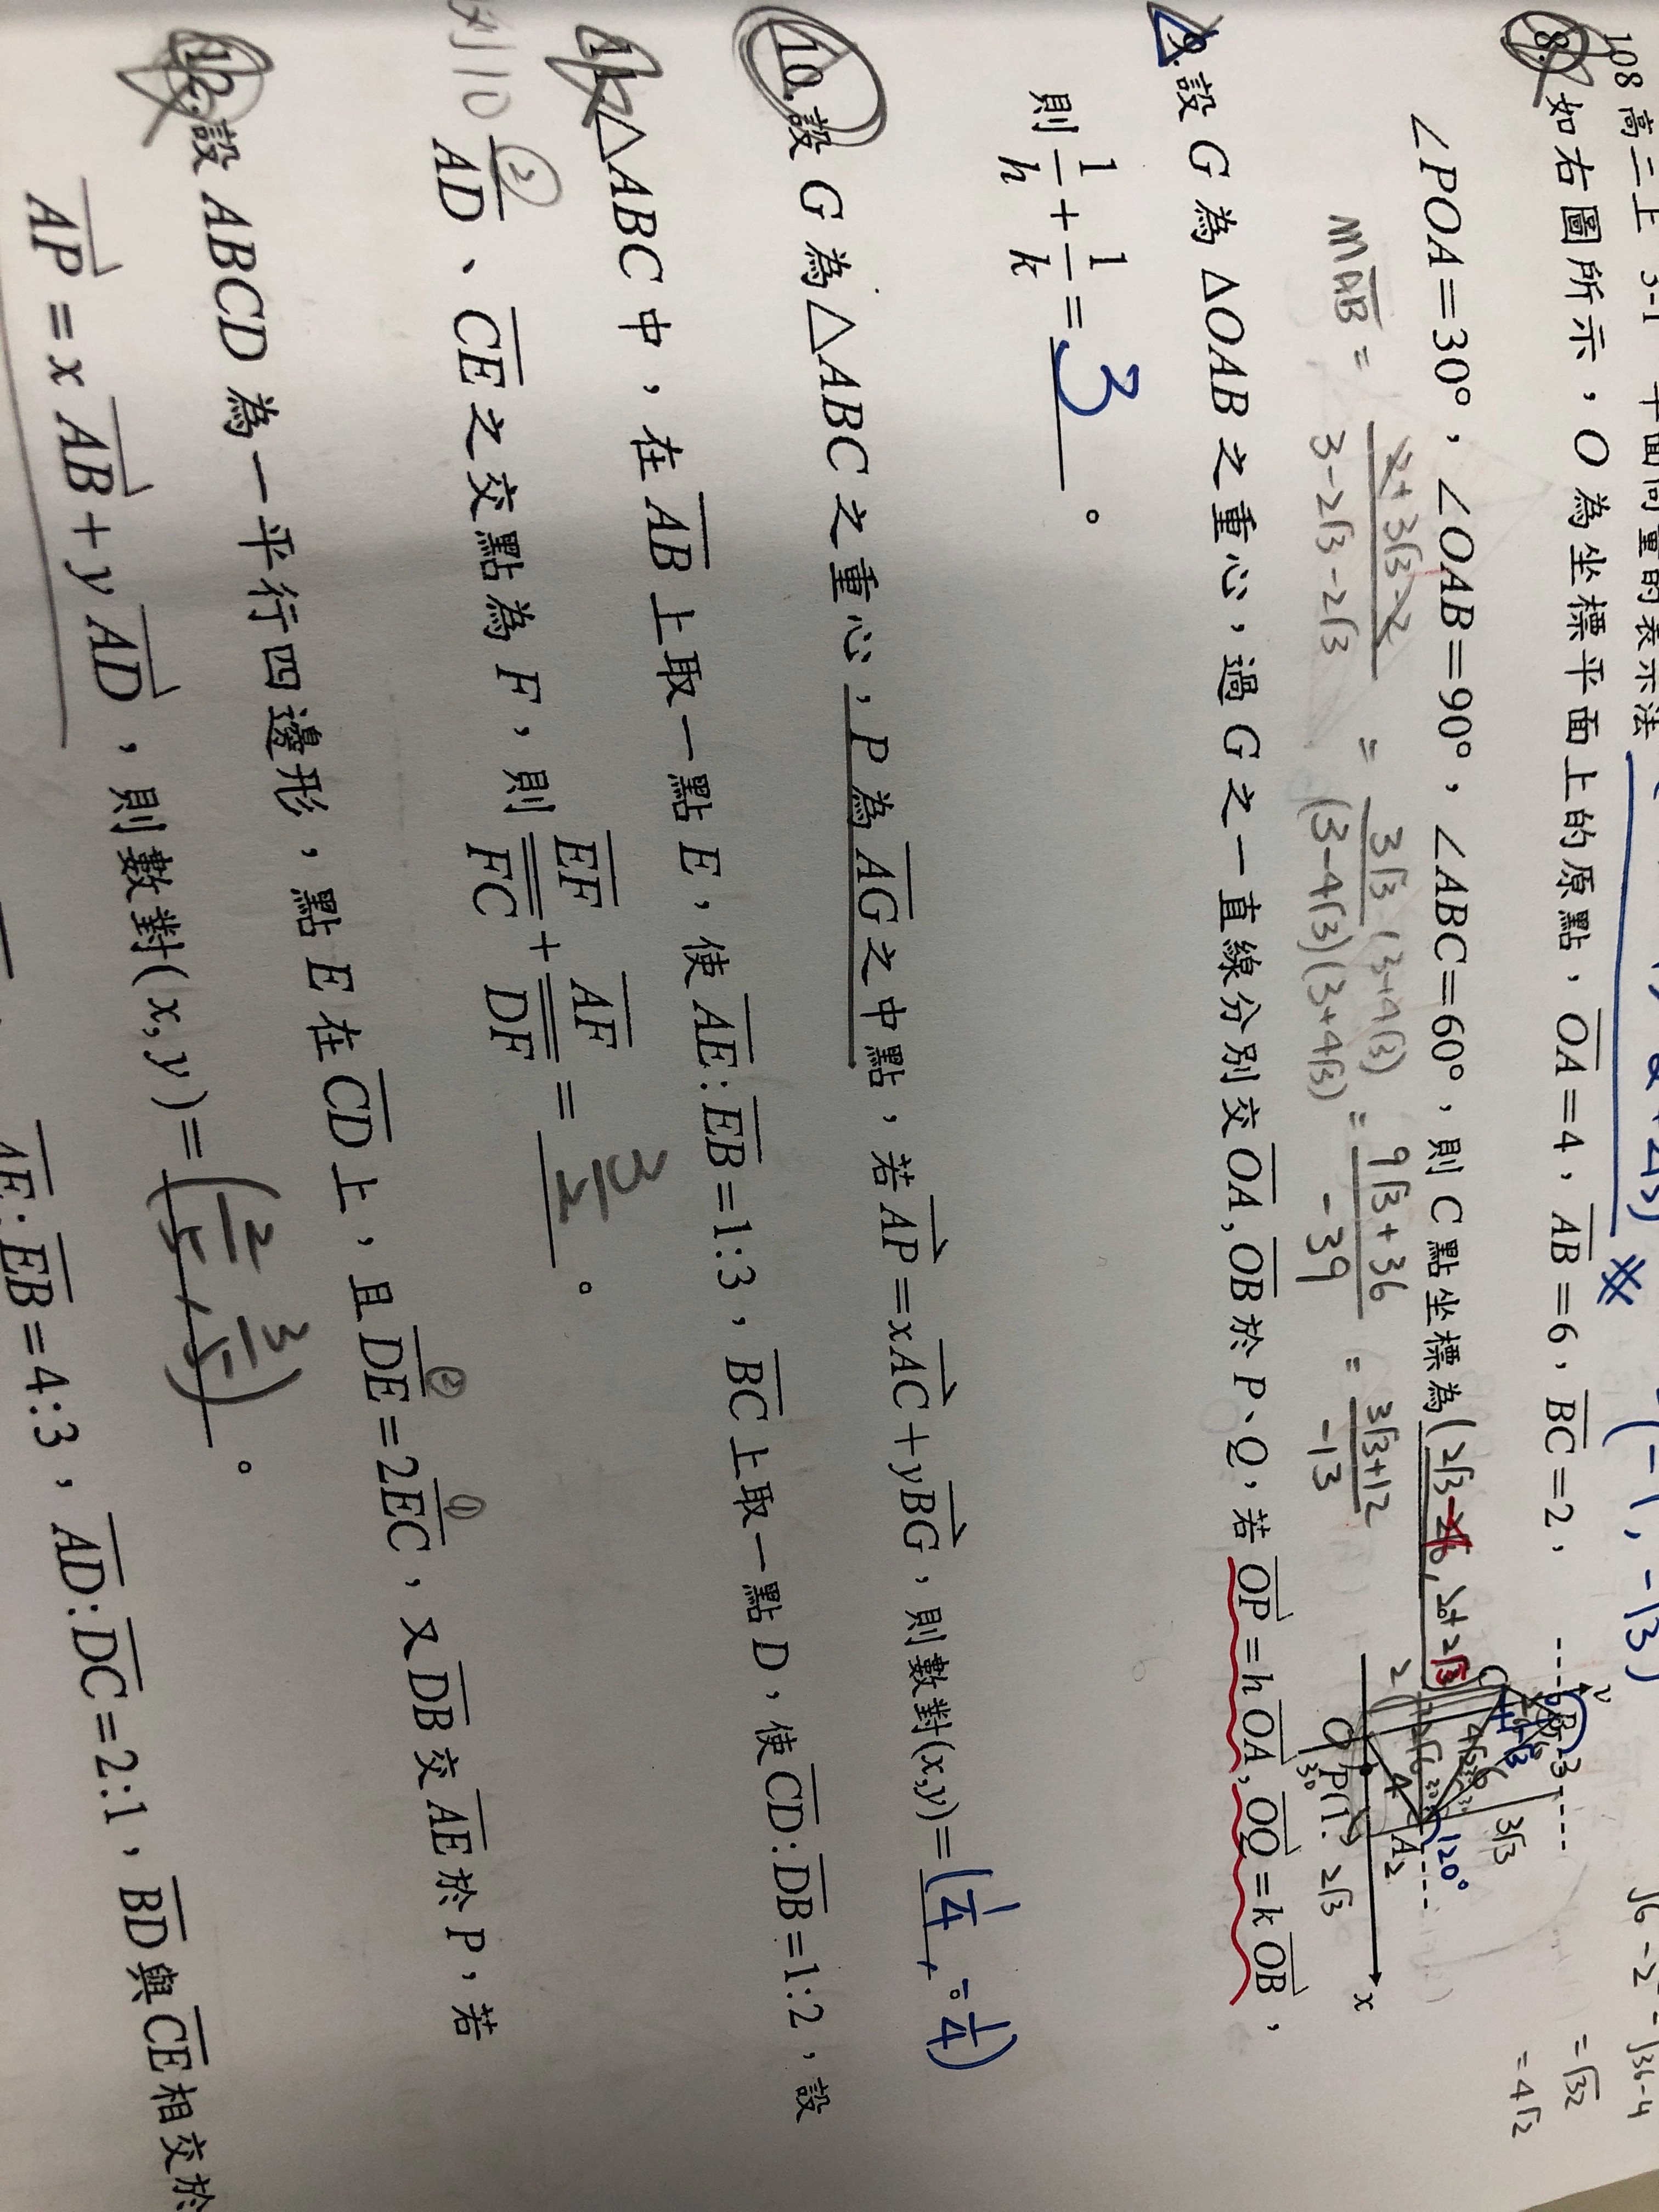 108 高二上 3-1 平面向量的表示法
8. 如右圖所示，O 為坐標平面上的原點，OA＝4，AB＝6，BC＝2，
∠POA＝30°，∠OAB＝90°，∠ABC＝60°，則 C 點坐標為(2√3-
mAB =
3-2√3-2√3
= 3√3 (3+4√3)
(3-4√3)(3+4√3)
= 9√3+36
-39
= 3√3+12
-13
120°
3√3
2√3
x
= √32
= 4√2
9. 設 G 為 △OAB 之重心，過 G 之一直線分別交 OA, OB 於 P、Q，若 OP＝hOA, OQ＝kOB，
則 1/h + 1/k = 3 。
10. 設 G 為 △ABC 之重心，P 為 AG 之中點，若 AP＝xAC＋yBG，則數對(x,y)＝(1/4, -1/4)。
11. △ABC 中，在 AB 上取一點 E，使 AE:EB＝1:3，BC 上取一點 D，使 CD:DB＝1:2，設
AD、CE 之交點為 F，則 EF/FC + AF/DF = 3/2 。
12. 設 ABCD 為一平行四邊形，點 E 在 CD 上，且 DE＝2EC，又 DB 交 AE 於 P，若
AP = x AB + y AD，則數對(x, y) = (2/5, 3/5) 。
AE:EB＝4:3，AD:DC＝2:1，BD 與 CE 相交於